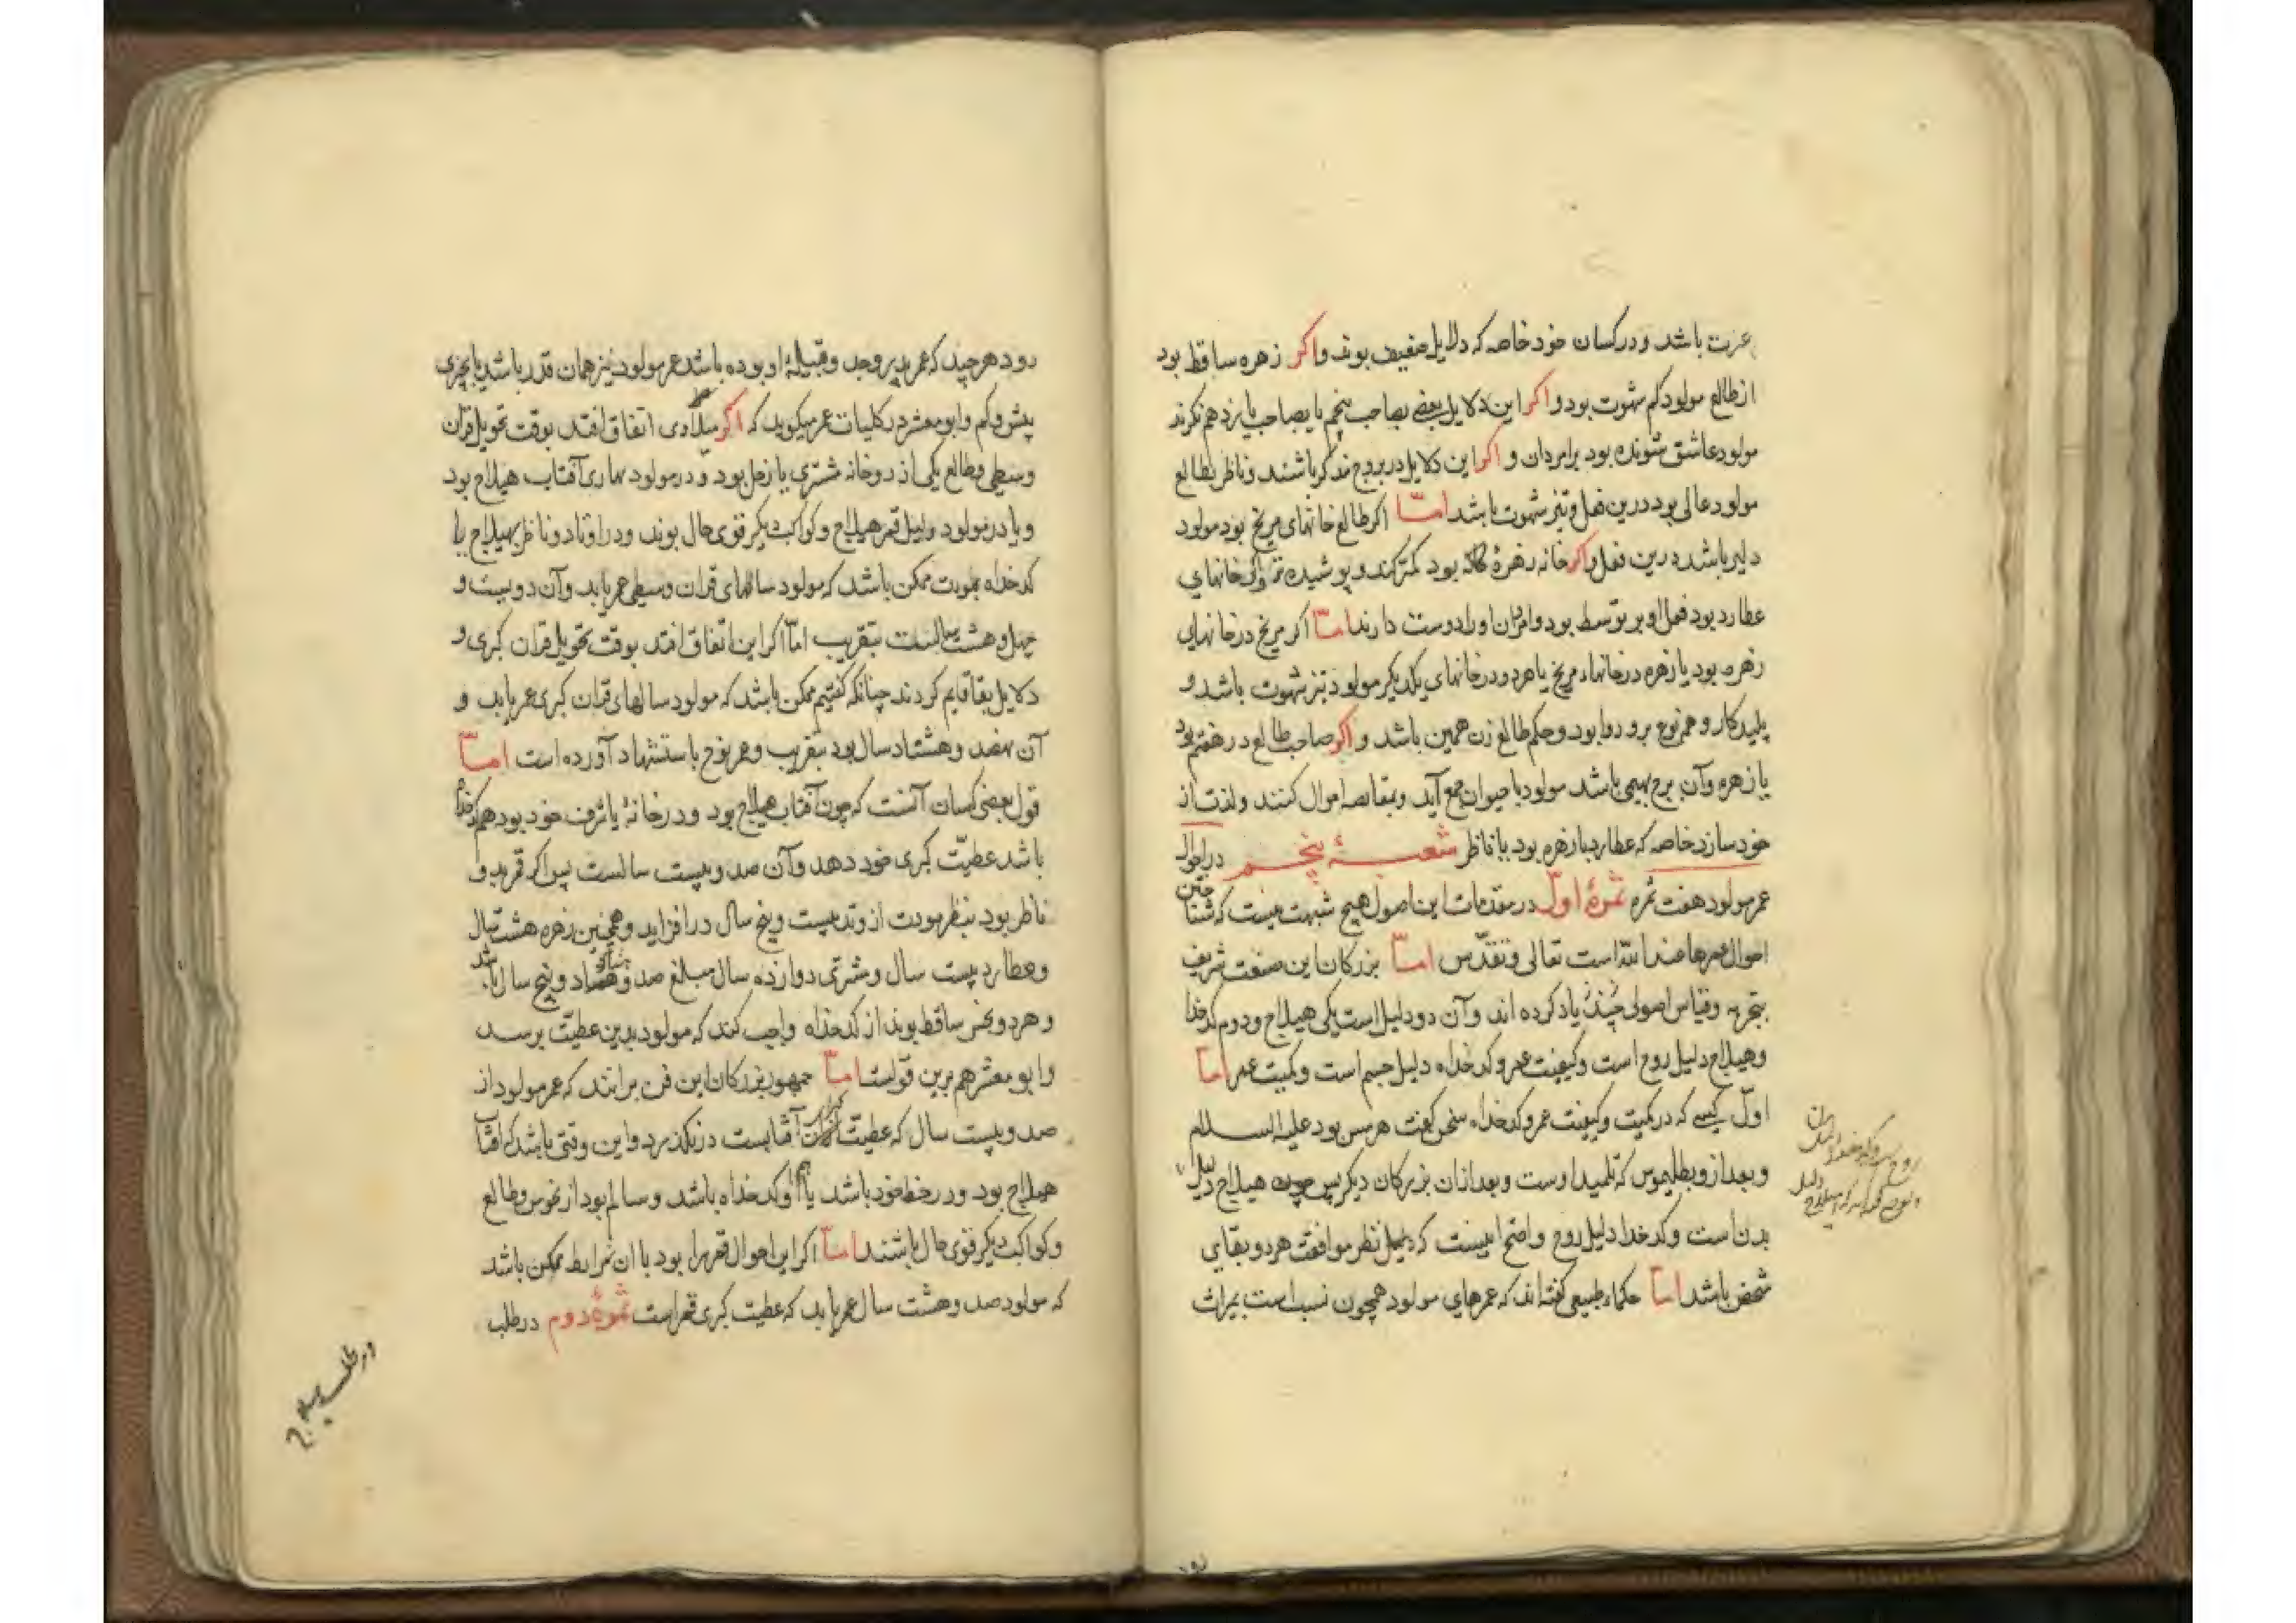 عزت باشد و در کسان خود خاصه که دلایل ضعیف بوند و اکر زهره ساقط بود
از طالع مولود کم شهوت بود و اکر این دلایل بعضی بصاحب پنجم یا بصاحب یازدهم نکرند
مولود عاشق شونده بود بر امردان و اکر این دلایل در بروج مذکر باشند و ناظر بطالع
مولود عالی بود درین فعل و تیز شهوت باشد امّا اکر طالع خانهای مریخ بود مولود
دلیر باشد درین فعل و اکر خانه زهره بود کمتر کند و پوشیده تر خانهای
عطارد بود فعل او بر توسط بود و او را دوست دارند امّا اکر مریخ در خانهای
زهره بود یا زهره در خانهاء مریخ یا هر دو در خانهای یکدیکر مولود تیز شهوت باشد و
پلید کار و همه نوع برو روا بود و حکم طالع زن همین باشد و اکر صاحب طالع در هفتم بود
یا زهره و آن برج بهیمی باشد مولود با حیوان جمع آید و اموال کنند و لذت از
خود سازد خاصه که عطارد با زهره بود یا ناظر شعبــهٔ پنجــم در احوال
عمر مولود هفت ثمره ثمرهٔ اوّل در مقدمات این اصول هیچ شبهت نیست که شناختن
احوال عمرها خدا تعالی و تقدّس امّا بزرکان این صنعت شریف
بتجربه و قیاس اصولی چند یاد کرده اند و آن دو دلیل است یکی هیلاج و دوم کدخدا
و هیلاج دلیل روح است و کیفیت عمر و کدخداه دلیل جسم است و کمیت عمر امّا
اوّل کسی که در کمیت و کیفیت عمر و کدخداه سخن کفت هرمس بود علیه السلام
و بعد ازو بطلمیوس که تلمیذ اوست و بعد ازان بزرکان دیکر پس چون هیلاج دلیل
بدن است و کدخدا دلیل روح و اضح اینست که نظر موافقت هر دو بقای
شخص باشد امّا حکماء طبیعی کفته اند که عمرهای مولود همچون نسب است بمیراث
رود هر چند که عمر پدر و جد و قبیلهٔ او بوده باشد عمر مولود نیز همان قدر باشد یا بچیزی
پیش و کم و ابو معشر در کلیات عمر میکوید که اکر میلادی اتفاق افتد بوقت تحویل قران
وسطی و طالع یکی از دو خانه مشتری یا زحل بود و در مولود نهاری آفتاب هیلاج بود
و یا در مولود لیلی قمر هیلاج و کواکب دیکر قوی حال بوند و در اوتاد و ناظر بهیلاج یا
کدخداه بمودت ممکن باشد که مولود سالهای قران وسطی عمر یابد و آن دویست و
چهل و هشت سالست بتقریب امّا اکر این اتفاق افتد بوقت تحویل قران کبری و
دلایل بقا قایم کردند چنانکه کفتیم ممکن باشد که مولود سالهای قران کبری عمر یابد و
آن نهصد و هشتاد سال بود بتقریب و عمر نوح باستشهاد آورده است امّا
قول بعضی کسان آنست که چون آفتاب هیلاج بود و در خانهٔ یا شرف خود بود هم کدخدا
باشد عطیّت کبری خود دهد و آن صد و بیست سالست پس اکر قمر بدو
ناظر بود بنظر مودت از وتد بیست و پنج سال در افزاید و همچنین زهره هشت سال
و عطارد بیست سال و مشتری دوازده سال مبلغ صد و هشتاد و پنج سال باشد
و هر دو نحس ساقط بوند از کدخداه واجب کند که مولود بدین عطیّت برسد
و ابو معشر هم برین قولست امّا جمهور بزرکان این فن برانند که عمر مولود از
صد و بیست سال که عطیّت کبری آفتابست در نکذرد و این وقتی باشد که آفتاب
هیلاج بود و در حظ خود باشد یا هم او کدخداه باشد و سالم بود از نحوس و طالع
و کواکب دیکر قوی حال باشند امّا اکر این احوال قمر را بود با ان شرایط ممکن باشد
که مولود صد و هشت سال عمر یابد که عطیت کبری قمر است ثمرهٔ دوم در طلب
در طلب هیلاج